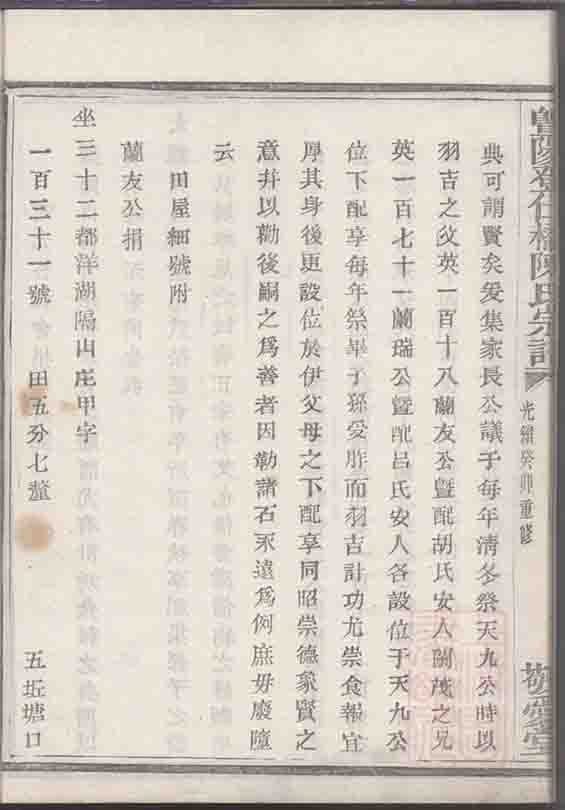 暨陽孝仁橋陳氏宗譜
光緒癸卯重修
敬愛堂
典可謂賢矣爰集家長公議于每年清冬祭天九公時以
羽吉之父英一百十八蘭友公暨配胡氏安人關茂之兄
英一百七十一蘭瑞公暨配呂氏安人各設位于天九公
位下配享每年祭畢子孫受胙而羽吉計功尤崇食報宜
厚其身後更設位於伊父母之下配享同昭崇德象賢之
意并以勸後嗣之為善者因勒諸石永遠為例庶毋廢墮
云
田屋細號附
蘭友公捐
坐三十二都洋湖隔山庄甲字
一百三十一號 田五分七釐 五坵塘口